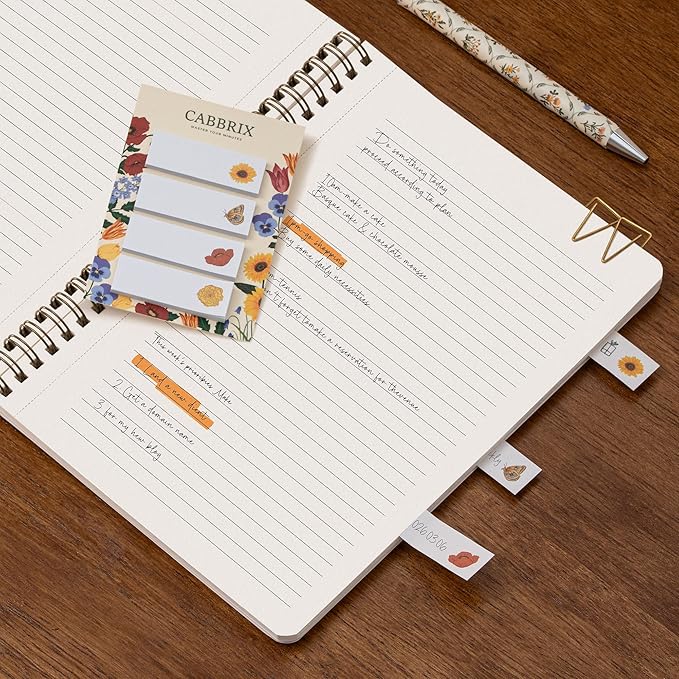 CABBRIX
MASTER YOUR MINUTES
Do something today
proceed according to plan
11am-make a cake
Basque cake & chocolate mousse
1pm-go shopping
Buy some daily necessities
tennis
forget to make a reservation for thevenue
This week's priorities Make
1 Land a new client
2 Get a domain name
3 for my new blog
026.03.06